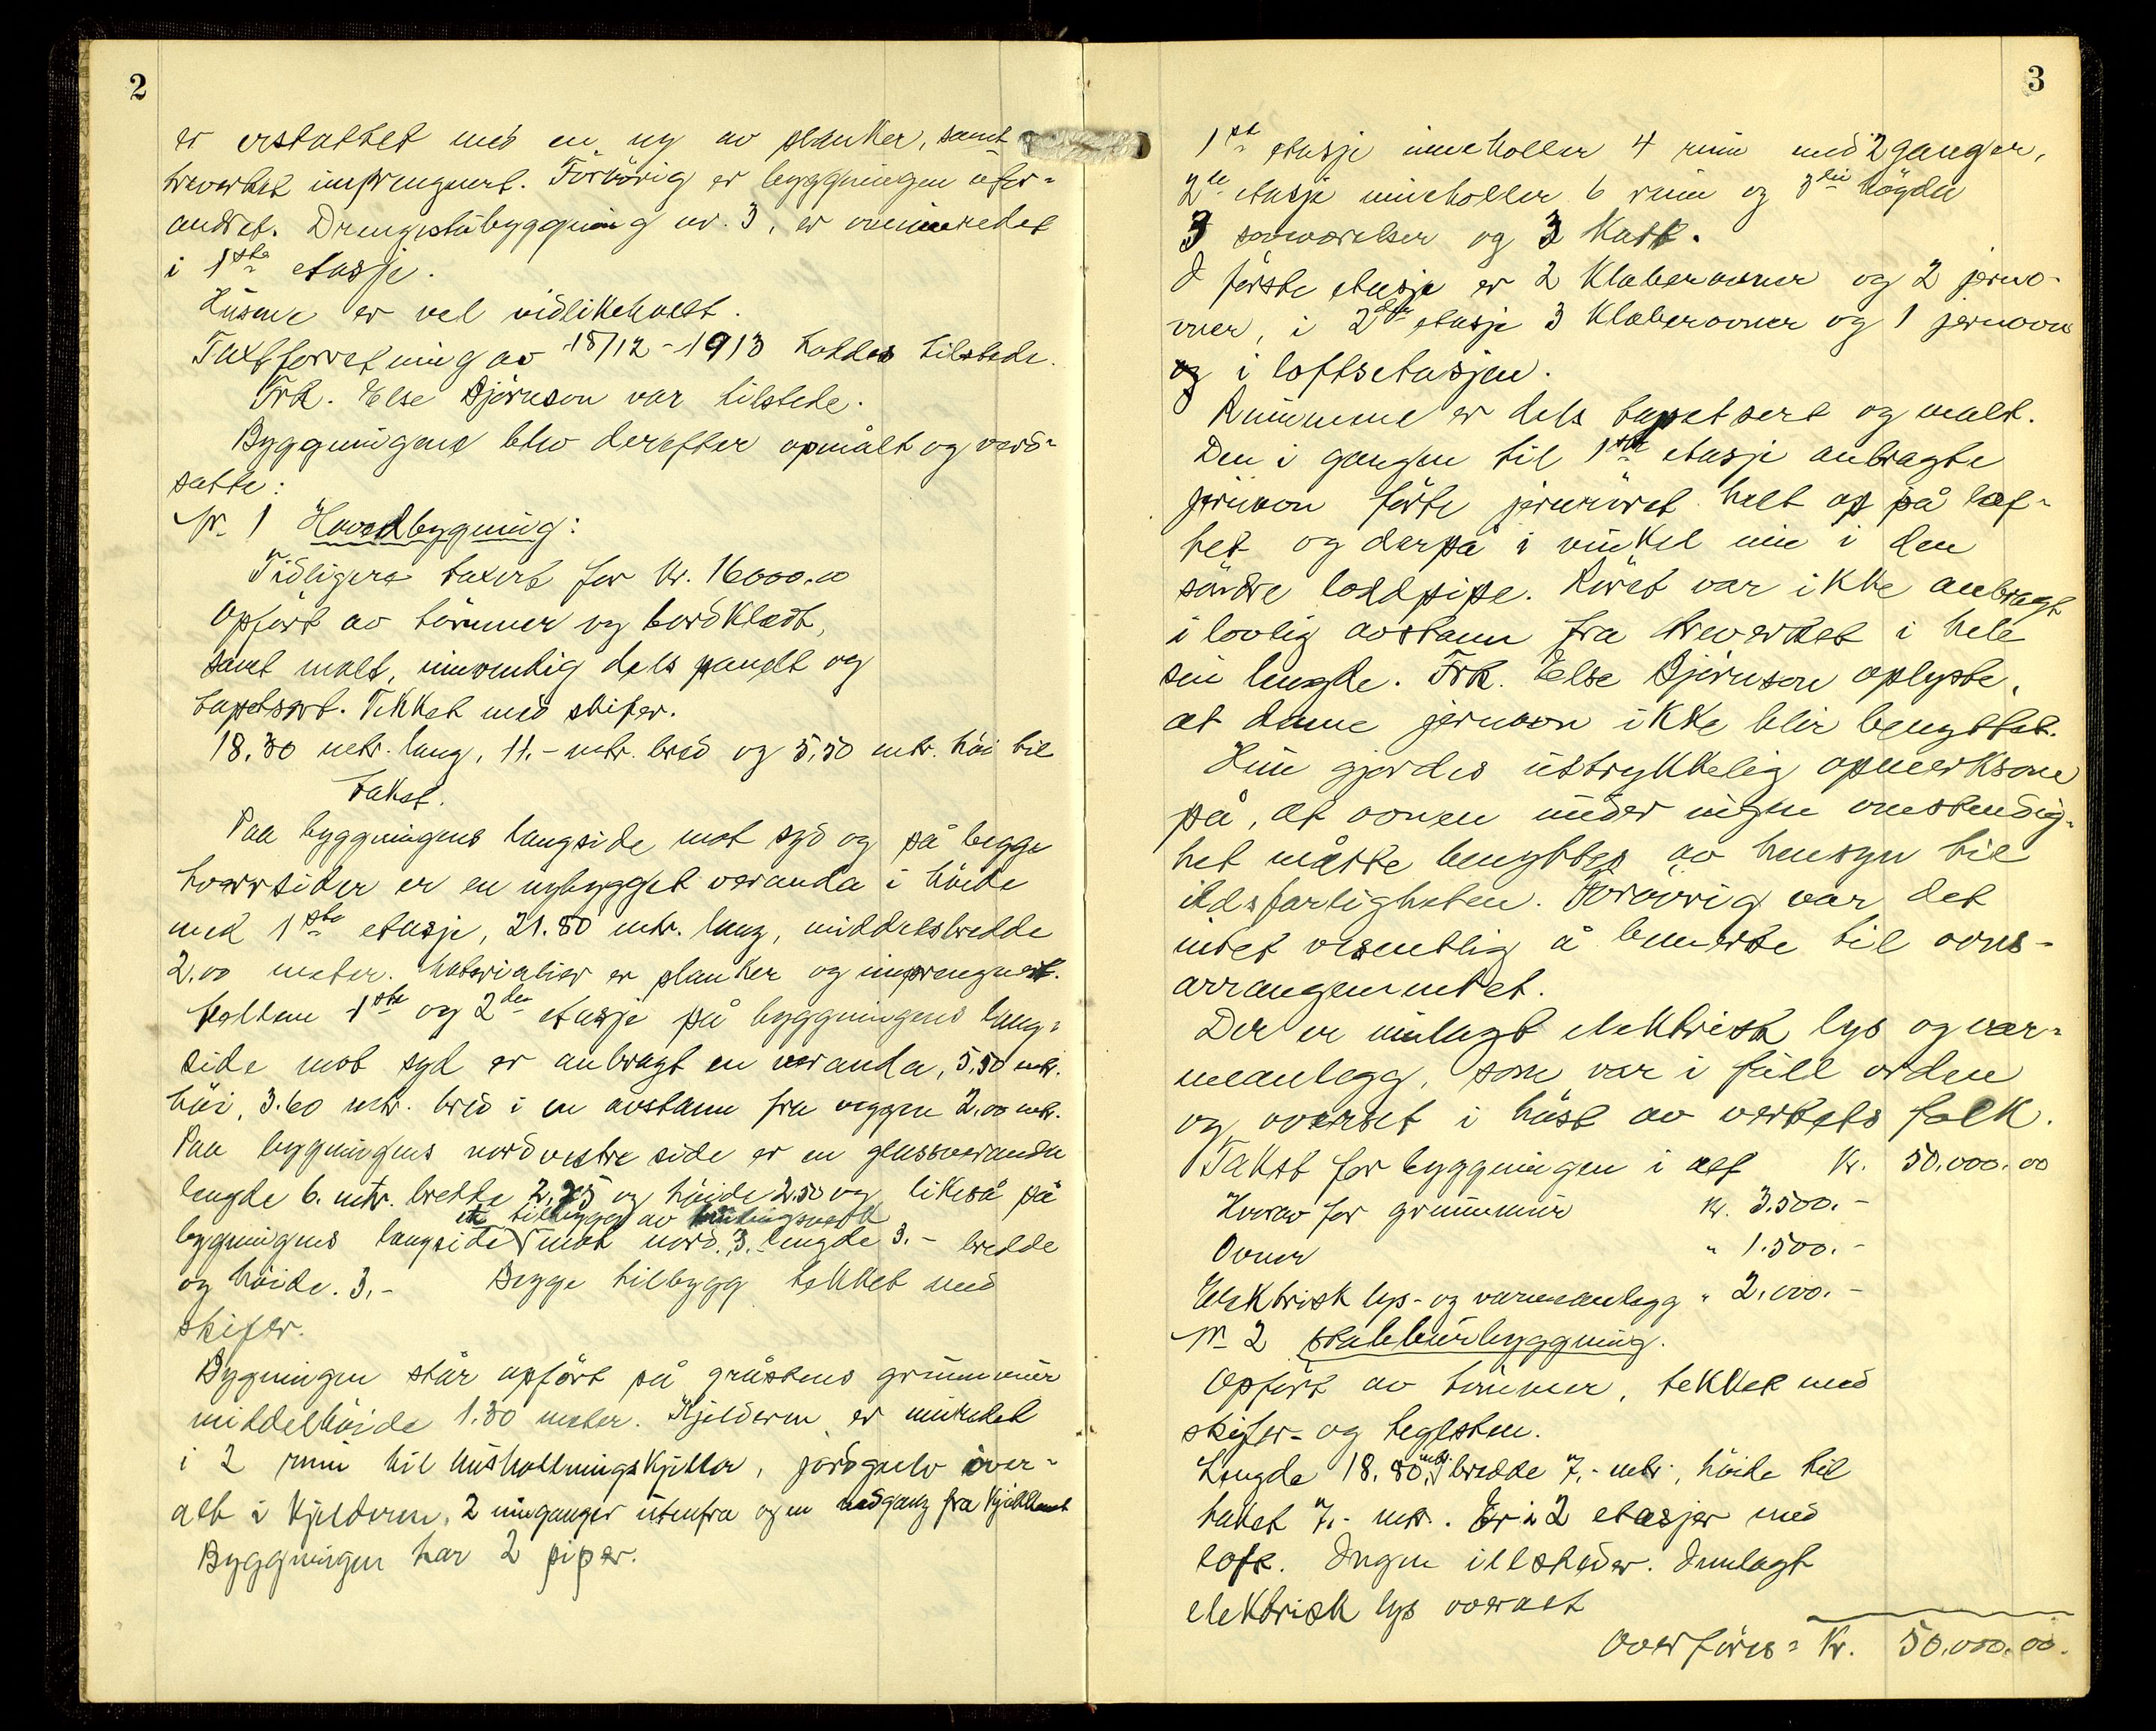 2
er erstattet med en ny av planker, samt
treverket imprengnert. Förövrig er byggningen ufor-
andret. Drengestubyggning nr. 3, er ominnredet
i 1ste etasje.
Husene er vel vidlikeholdt.
Taxtforretning av 18/12-1913 holdes tilstede.
Frk. Else Björnson var tilstede.
Byggningene blev derefter opmålt og verd-
satte:
Nr 1 Hovedbygning:
Tidligere taxert for Kr. 16000.00
Opfört av tömmer og bordklædt,
samt malt, innvendig dels panelt og
tapetsert. Tekket med skifer.
18.30 mtr. lang, 11.- mtr. bred og 5,50 mtr. höi til
takst.
Paa byggningens langside mot syd og på begge
tverrsider er en nybygget veranda i höide
med 1ste etasje, 21.80 mtr. lang, middelsbredde
2.00 meter. Materialier er planker og imprengnert.
Mellem 1ste og 2den etasje på byggningens lang-
side mot syd er anbragt en veranda, 5,50 mtr.
höi, 3.60 mtr. bred i en avstann fra veggen 2.00 mtr.
Paa bygningens nordvestre side er en glassveranda
lengde 6. mtr. bredde 2,75 og höide 2.50 og likeså på
et tilbygg av
bygningens langside mot nord. 3. lengde 3.- bredde
og höide. 3.- Begge tilbygg tekket med
skifer.
Bygningen står opfört på gråstens grunnmur
middelhöide 1.30 meter. Kjelderen er innredet
i 2 rum til husholtningskjeller, jordgulv över-
alt i kjelderen, 2 innganger utenfra og en nedgang fra kjökkenet
Byggningen har 2 piper.
3
1ste etasje inneholler 4 rum med 2 ganger,
2de etasje inneholler 6 rum og 3die höyde
3 soveværelser og 3 kott.
I förste etasje er 2 Kleberovner og 2 jerno-
vner, i 2den etasje 3 Kleberovner og 1 jernovn
og i loftsetasjen.
Rummene er dels tapetsert og malt.
Den i gangen til 1ste etasje anbragte
jernovn förte jernröret helt op på lof-
tet og derpå i vinkel inn i den
söndre loddpipe. Röret var ikke anbragt
i lovlig avstann fra treverket i hele
sin lengde. Frk. Else Björnson oplyste,
at denne jernovn ikke blir benyttet.
Hun gjordes uttrykkelig opmerksom
på, at ovnen under ingen omstendig-
het måtte benyttes av hensyn til
ildsfarligheten. Forövrig var det
intet vesentlig å bemerke til ovns-
arrangementet.
Der er innlagt elektrisk lys og var-
meanlegg, som var i full orden
og overset i höst av verkets folk.
Takst for byggningen i alt Kr. 50.000.00
Herav for grunnmur Kr. 3.500.-
Ovner " 1.500.-
Elektrisk lys- og varmeanlegg " 2.000.-
Nr 2 Stabbursbyggning.
Opfört av tömmer, tekket med
skifer- og teglsten.
Lengde 18.80 mtr. bredde 7.- mtr., höide til
taket 7.- mtr. Er i 2 etasjer med
loft. Ingen illsteder. Innlagt
elektrisk lys overalt
Overföres = Kr. 50.000.00.